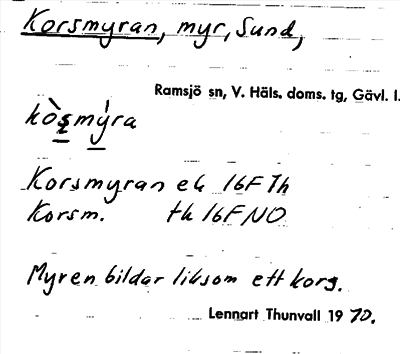 Korsmyran, myr, Sund,
Ramsjö sn, V. Häls. doms. tg, Gävl. l.
Korsmyran ek 16F7h
Korsm. tk 16FNO
Myren bildar liksom ett kors.
Lennart Thunvall 1970.